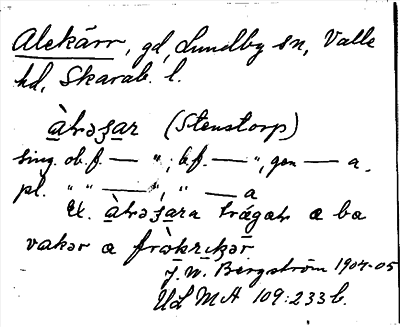 Alekärr, gd, Lundby sn, Valle
hd, Skarab. l.
àləʒar (Stenstorp)
sing. ob. f. — "; bf. — ", gen — a.
pl. " " — "; " — a
Ex. àləʒara trágar æ ba
vakər æ fròkrikər
J. W. Bergström 1904-05
ULMA 109:233 b.